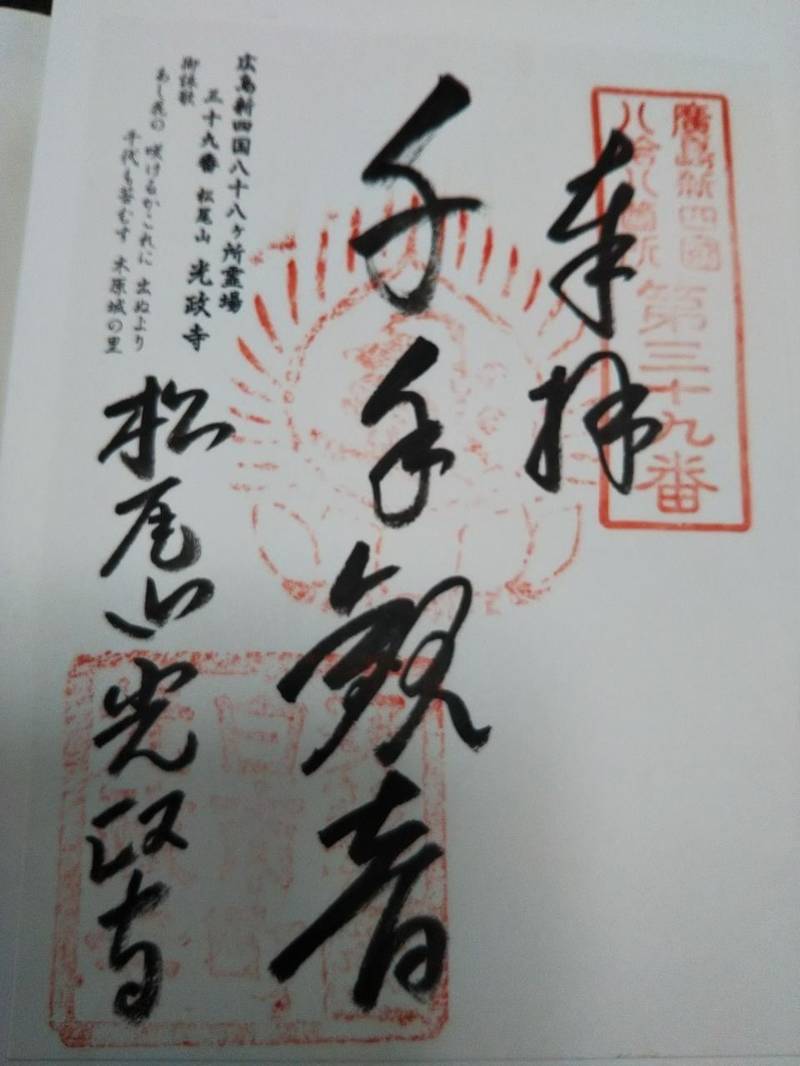 廣島新四國
八拾八箇所
第三十九番
奉拝
千手観音
広島新四国八十八ヶ所霊場
三十九番 松尾山 光政寺
御詠歌
あし氏の 咲けるかこれに 出ぬより
千代も苔むす 木原城の里
松尾山 光政寺